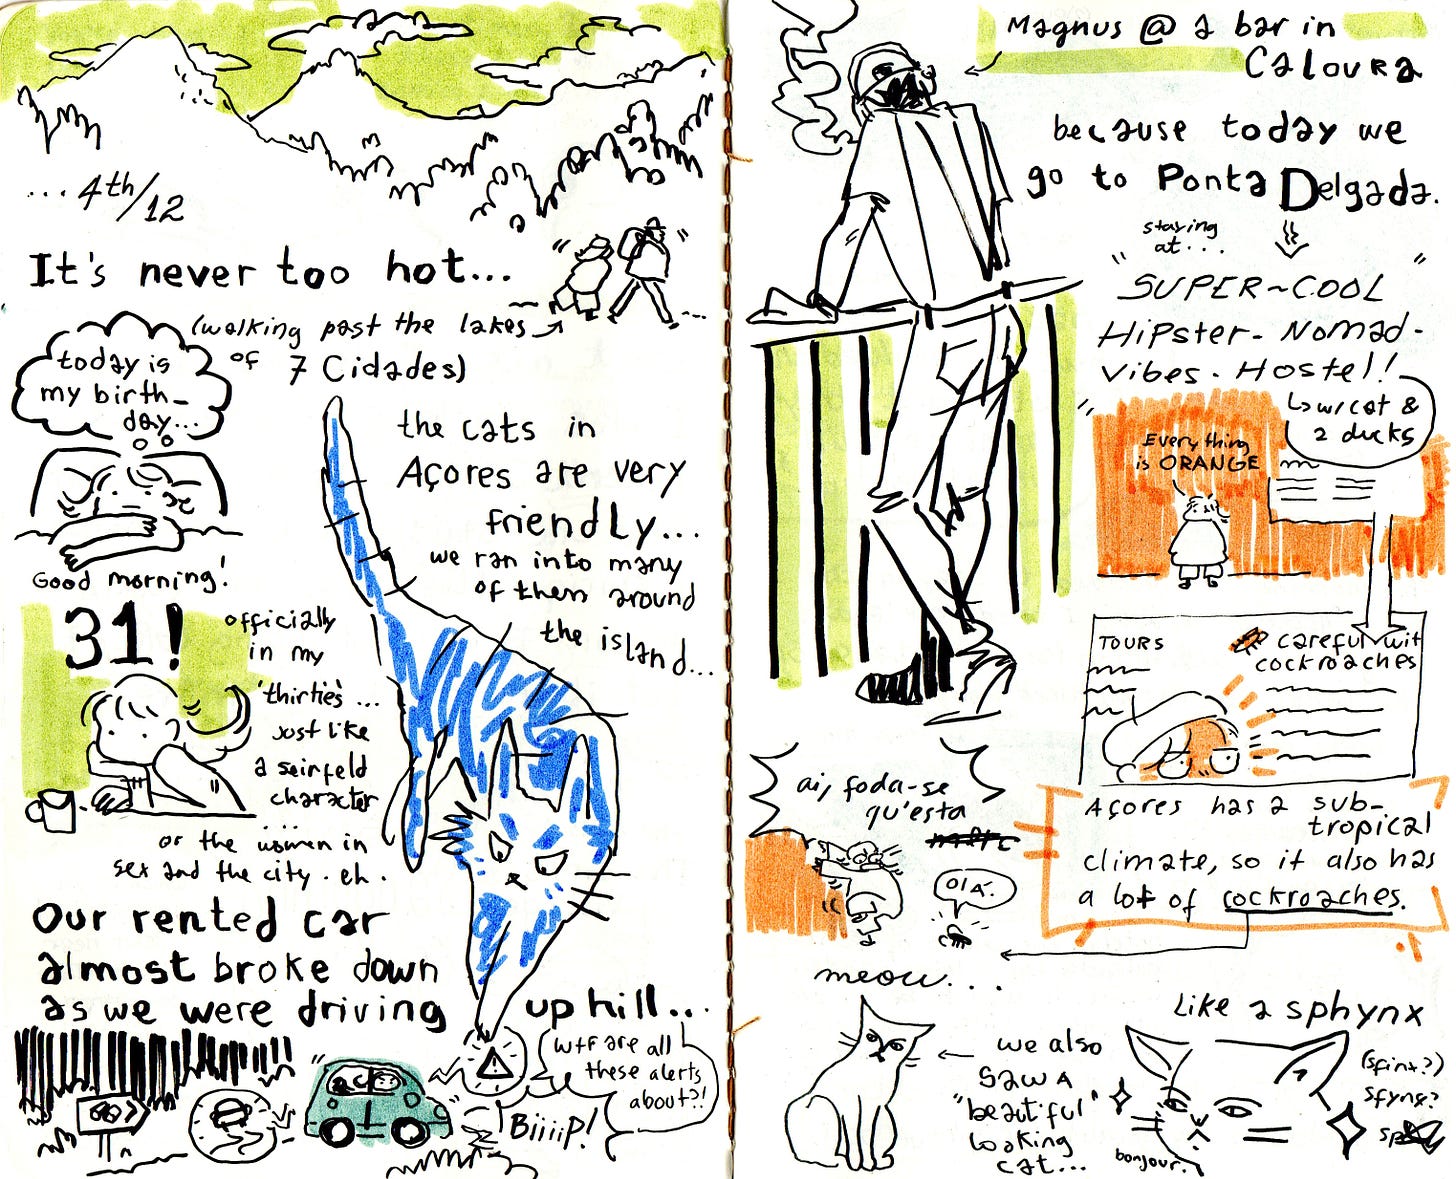 ...4th/12
It's never too hot...
(walking past the lakes
of 7 Cidades)
today is
my birth-
day...
Good morning!
the cats in
Açores are very
friendly...
we ran into many
of them around
the island...
31!
officially
in my
'thirties'...
just like
a seinfeld
character
or the women in
sex and the city. eh.
Our rented car
almost broke down
as we were driving
up hill...
wtf are all
these alerts
about?!
Biiiip!
Magnus @ a bar in
Caloura
because today we
go to Ponta Delgada.
staying
at...
"SUPER-COOL
Hipster-Nomad-
Vibes-Hostel!"
w/cat &
2 ducks
Everything
is ORANGE
TOURS
careful wit
cockroaches
ai, foda-se
qu'esta
olá.
Açores has a sub-
tropical
climate, so it also has
a lot of cockroaches.
meow...
we also
saw a
"beautiful"
looking
cat...
Like a sphynx
(sfinx?)
sfynx?
bonjour.